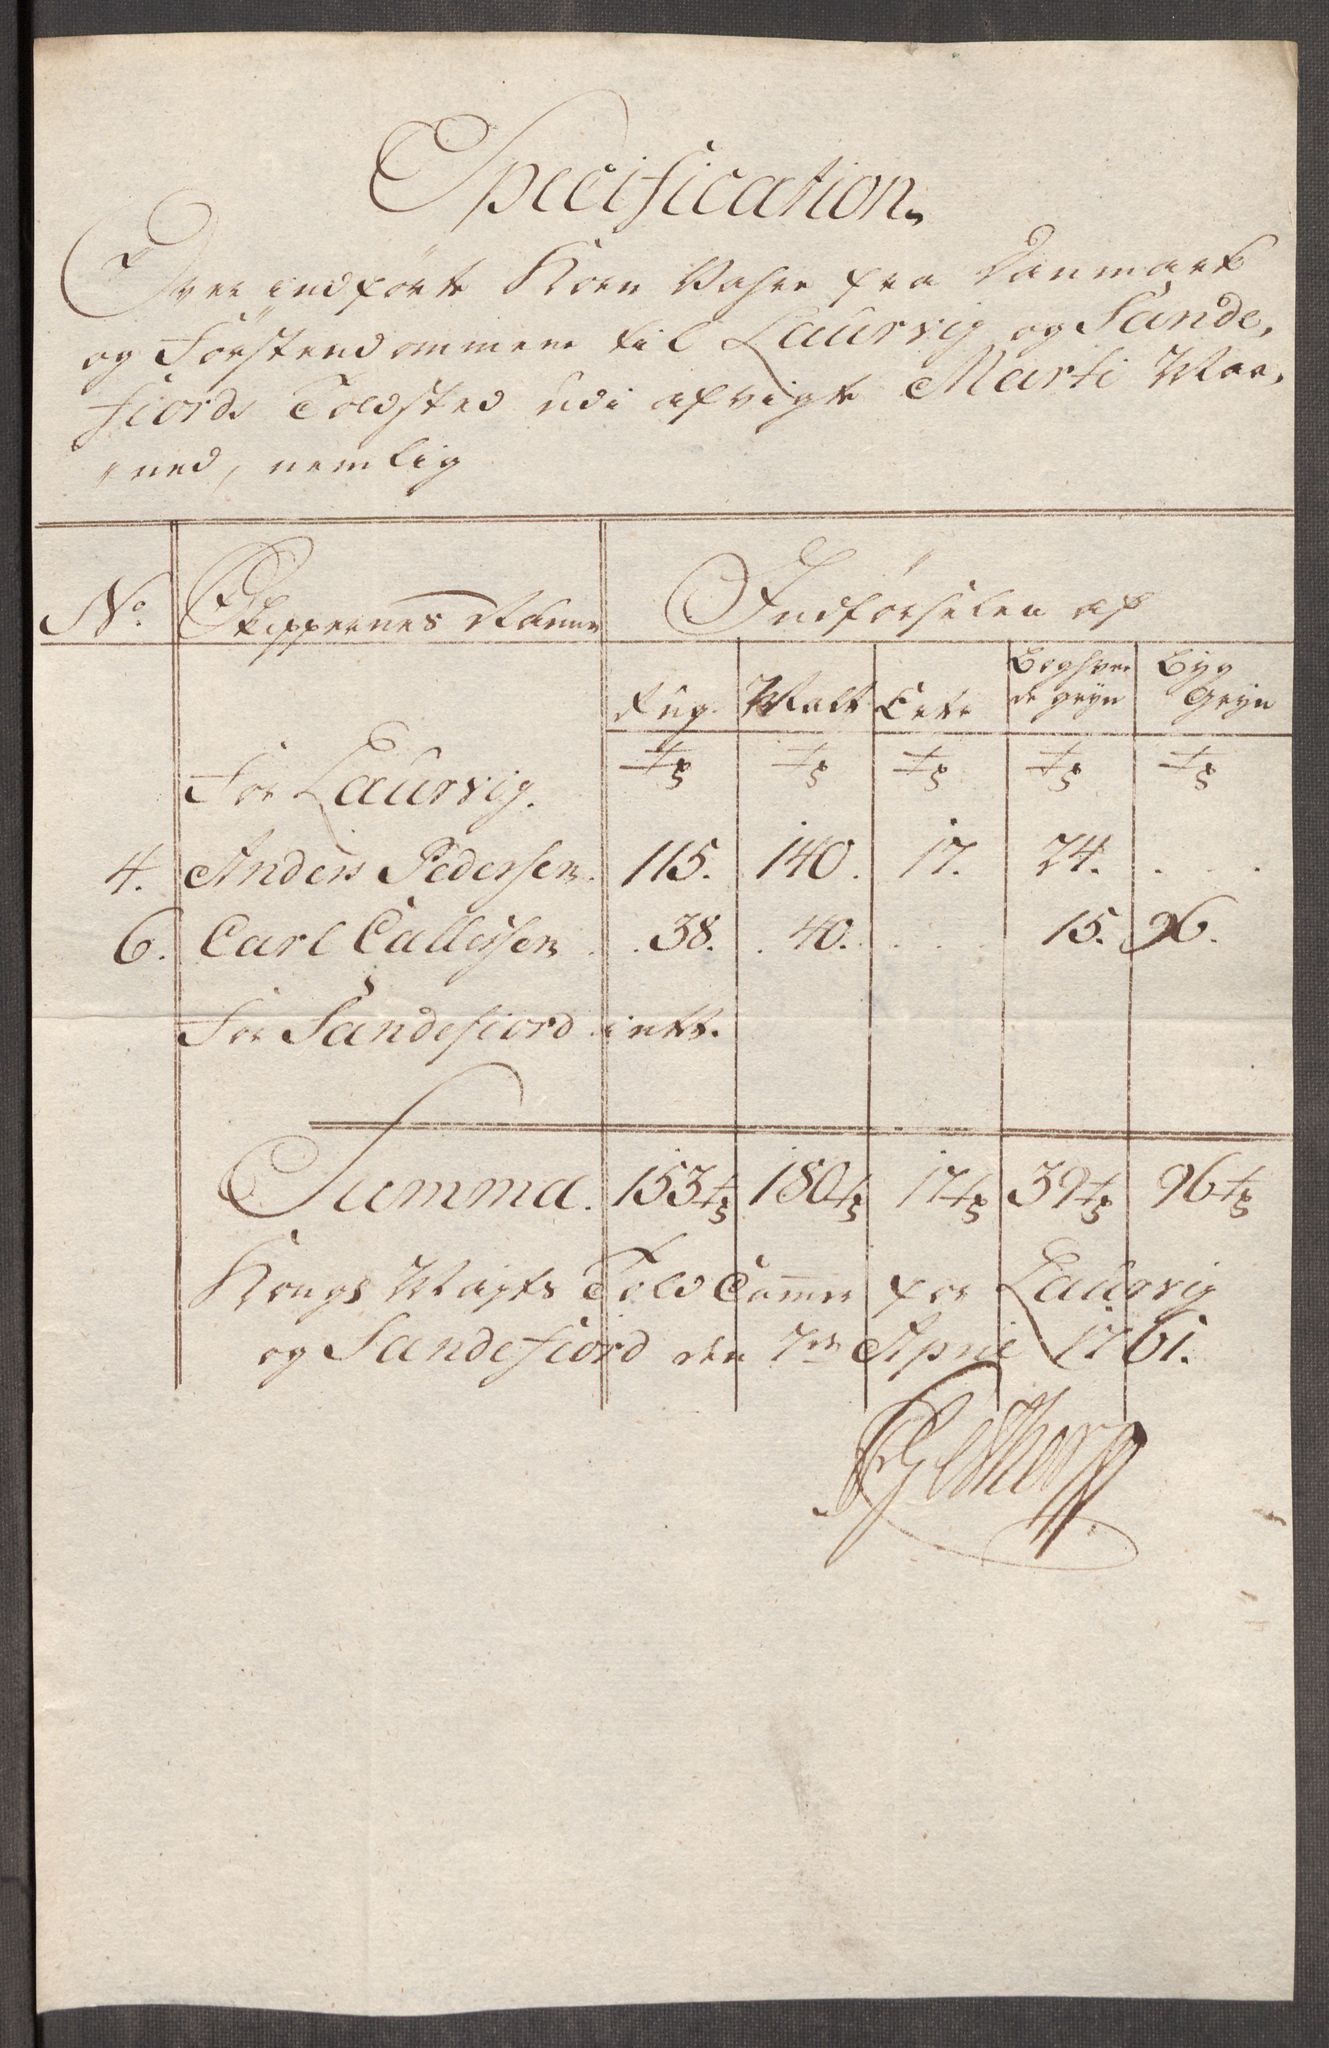 Specification
Over indførte Korn Vahre fra Danmark
og Førstendommene til Laurvig og Sande,
fiords Toldsted udi afvigte Marti Maa,
ned, nemlig
No. Skippernes Nafne Indførselen af
Rug. Malt Erter Boghve- de gryn Byg Gryn
For Laurvig. Tr Tr Tr Tr Tr
4. Anders Pedersen. 115. 140. 17. 24. . .
6. Carl Callessen . 38. . 40. . . 15. 96.
For Sandefiord intet.
Summa. 153 Tr 180 Tr 17 Tr 39 Tr 96 Tr
Kongs Mayts Told Camer for Laurvig
og Sandefiord den 7de April 1761.